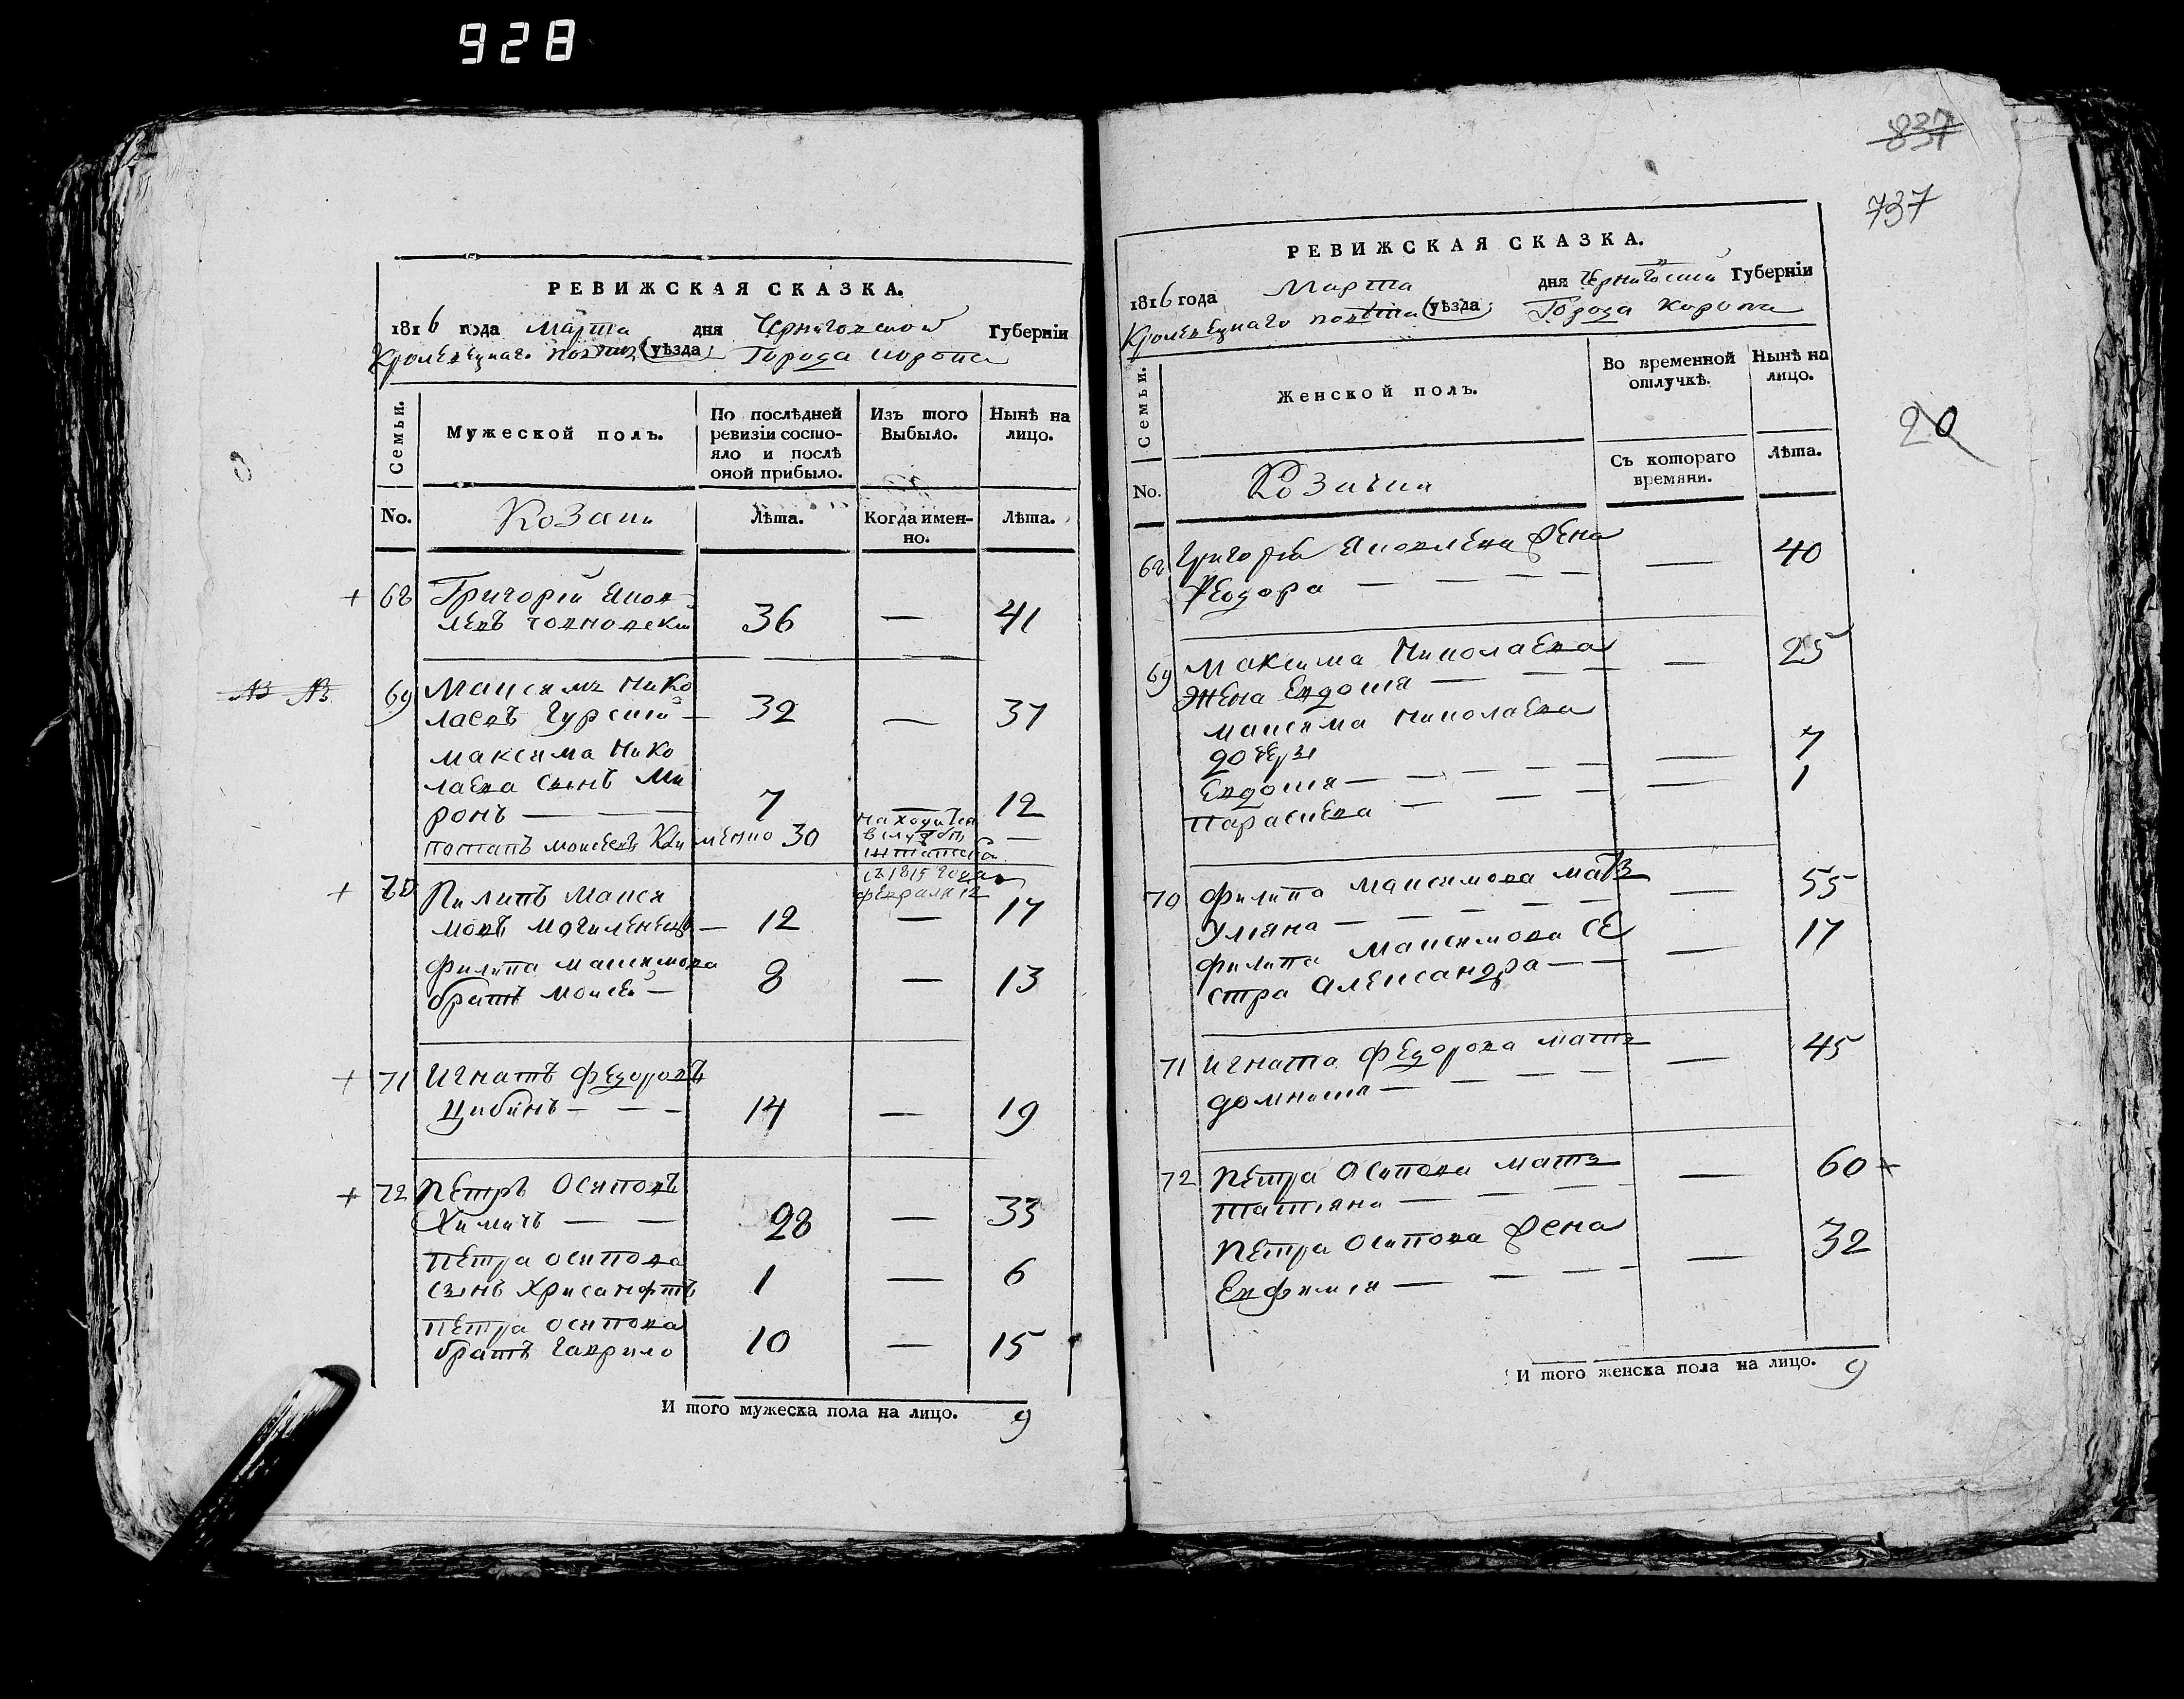 928
РЕВИЖСКАЯ СКАЗКА.
1816 года Марта дня Черниговской Губерніи
Кролевецкаго повета (уѣзда) Города Коропа
Семьи.
Мужеской полъ.
По послѣдней ревизіи состо-
яло и послѣ
оной прибыло.
Изъ того
Выбыло.
Нынѣ на
лицо.
No.
Козаки
Лѣта.
Когда имен-
но.
Лѣта.
68 Григорій Яков
левъ 36 — 41
69 Максимъ Нико
лаевъ Гурскій 32 — 37
Максима Нико
лаева сынъ Ми
ронъ — 7 — 12
Потапъ Моисеевъ 30 находится
в службѣ —
съ 1815 года
февраля 12
70 Пилипъ Макси
мовъ Могилевецъ — 12 — 17
Филипа Максимова
братъ Моисей — 8 — 13
71 Игнатъ Федоровъ
Цибинъ — — — 14 — 19
72 Петръ Осиповъ
Химичъ — — 28 — 33
Петра Осипова
сынъ Хрисанфтъ 1 — 6
Петра Осипова
братъ Гаврило 10 — 15
И того мужеска пола на лицо. 9
837
737
РЕВИЖСКАЯ СКАЗКА.
1816 года Марта дня Черниговской Губерніи
Кролевецкаго повета (уѣзда) Города Коропа
20
Семьи.
Женской полъ.
Во временной
отлучкѣ.
Нынѣ на
лицо.
No.
Козачки
Съ котораго
времяни.
Лѣта.
68 Григорія Яковлева жена
Феодора — — — — — 40
69 Максима Николаева
жена Евдокия — — — 25
Максима Николаева
дочери
Евдокия — — — — — 7
Параскева — — — — 1
70 Филипа Максимова мать
Улияна — — — — — 55
Филипа Максимова се
стра Александра — — — 17
71 Игната Федорова мать
Домникия — — — — — 45
72 Петра Осипова мать
Татияна — — — — — 60 +
Петра Осипова жена
Евфимия — — — — 32
И того женска пола на лицо. 9